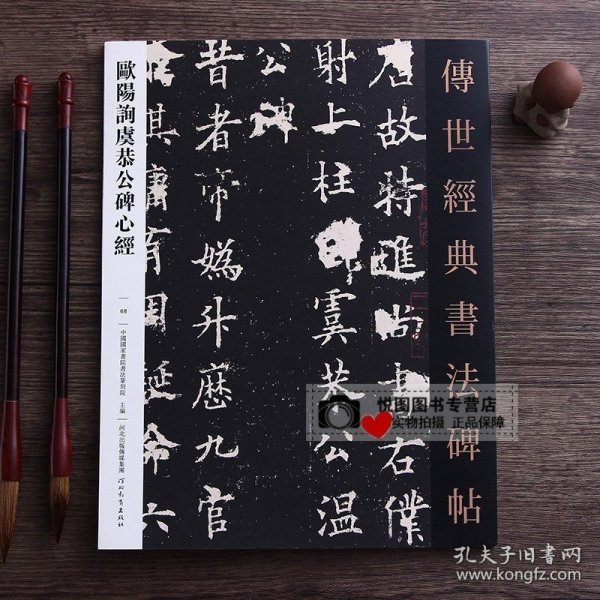 傳世經典書法碑帖
唐故特進尚書右僕
射上柱國虞恭公溫
公碑
昔者帝媯升歷九官
命六
歐陽詢虞恭公碑心經
68
中國國家畫院書法篆刻院 主編
河北出版傳媒集團
河北教育出版社
悦图图书专营店
实物拍摄 正品保障
孔夫子旧书网
www.kongfz.com